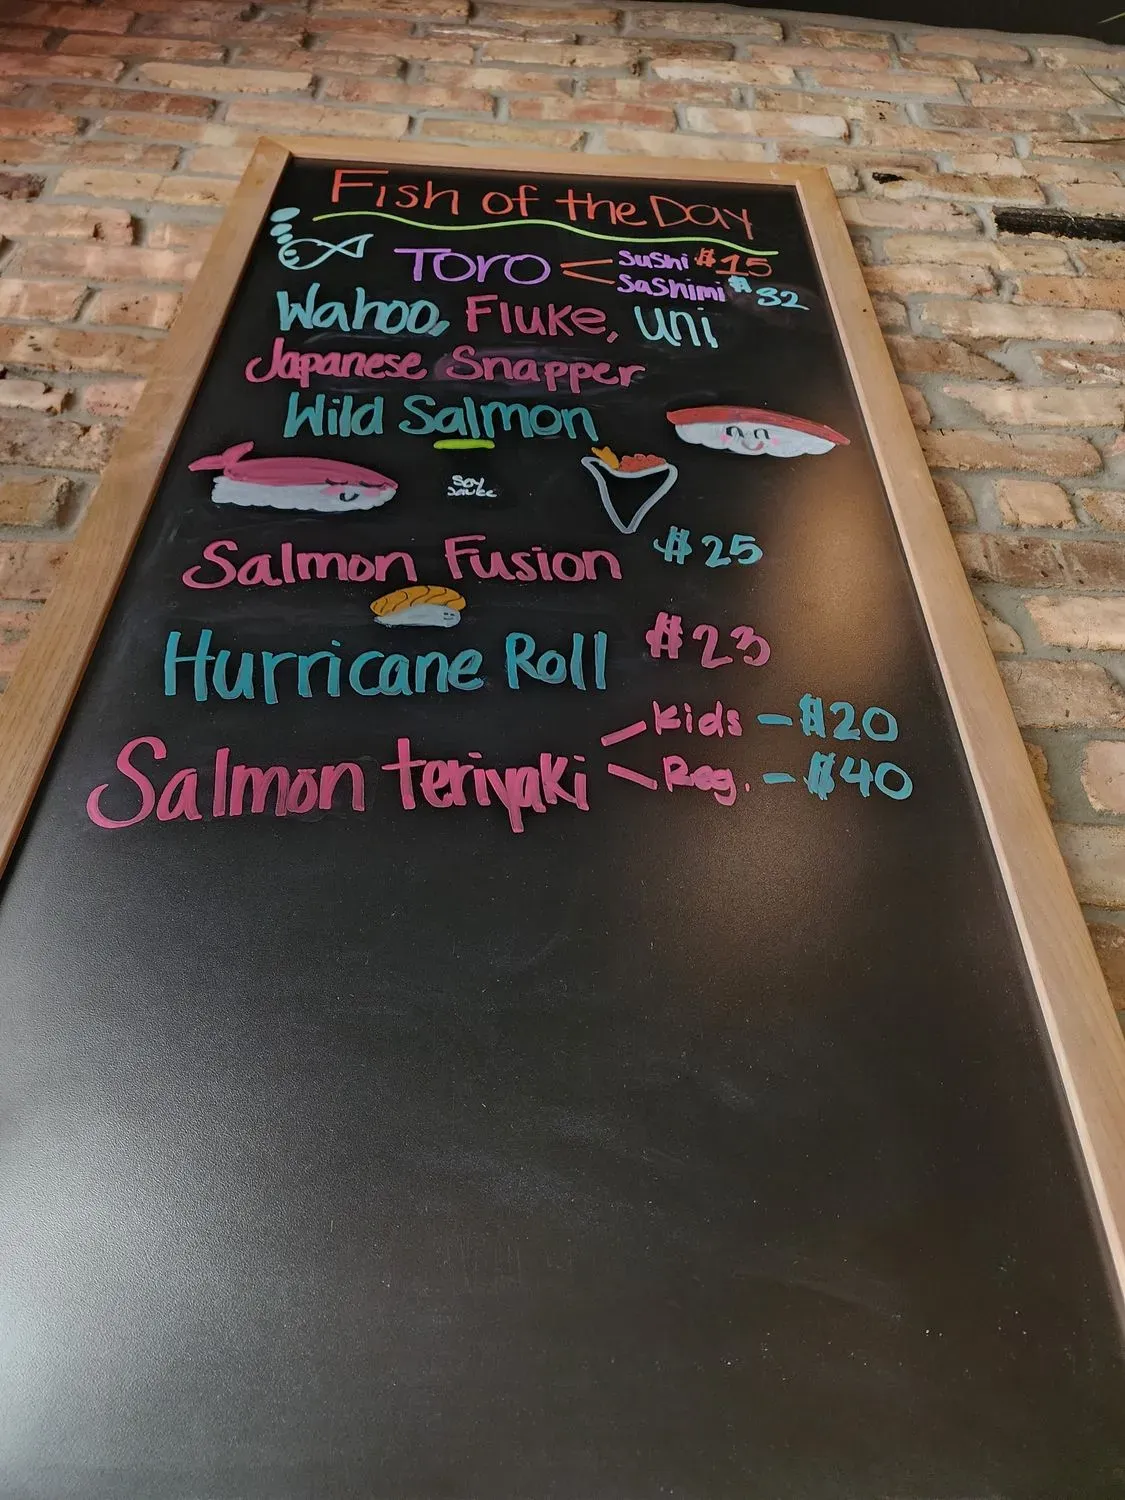 Fish of the Day
Toro
Sushi $15
Sashimi $32
Wahoo, Fluke, uni
Japanese Snapper
Wild Salmon
Soy
Sauce
Salmon Fusion $25
Hurricane Roll $23
Salmon teriyaki
Kids - $20
Reg. - $40